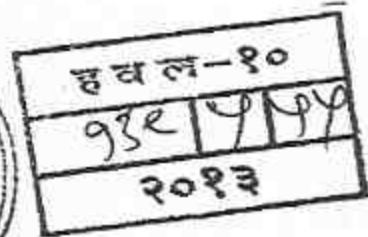 हवल-१०
१३९ ५ ५५
२०१३